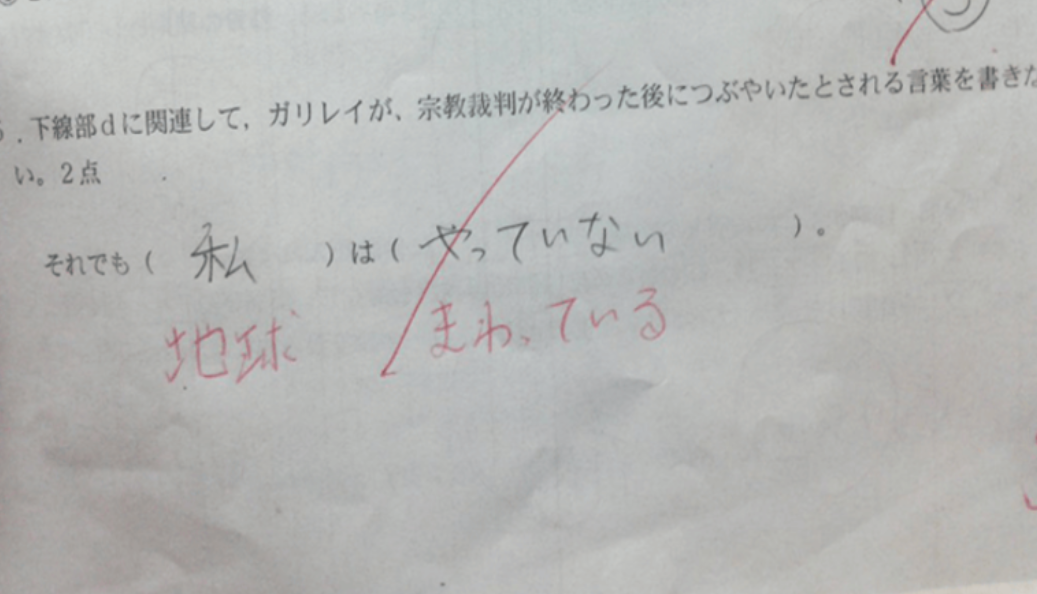 ．下線部dに関連して，ガリレイが、宗教裁判が終わった後につぶやいたとされる言葉を書きな
い。2点
それでも（ 私 ）は（ やっていない ）。
地球 まわっている